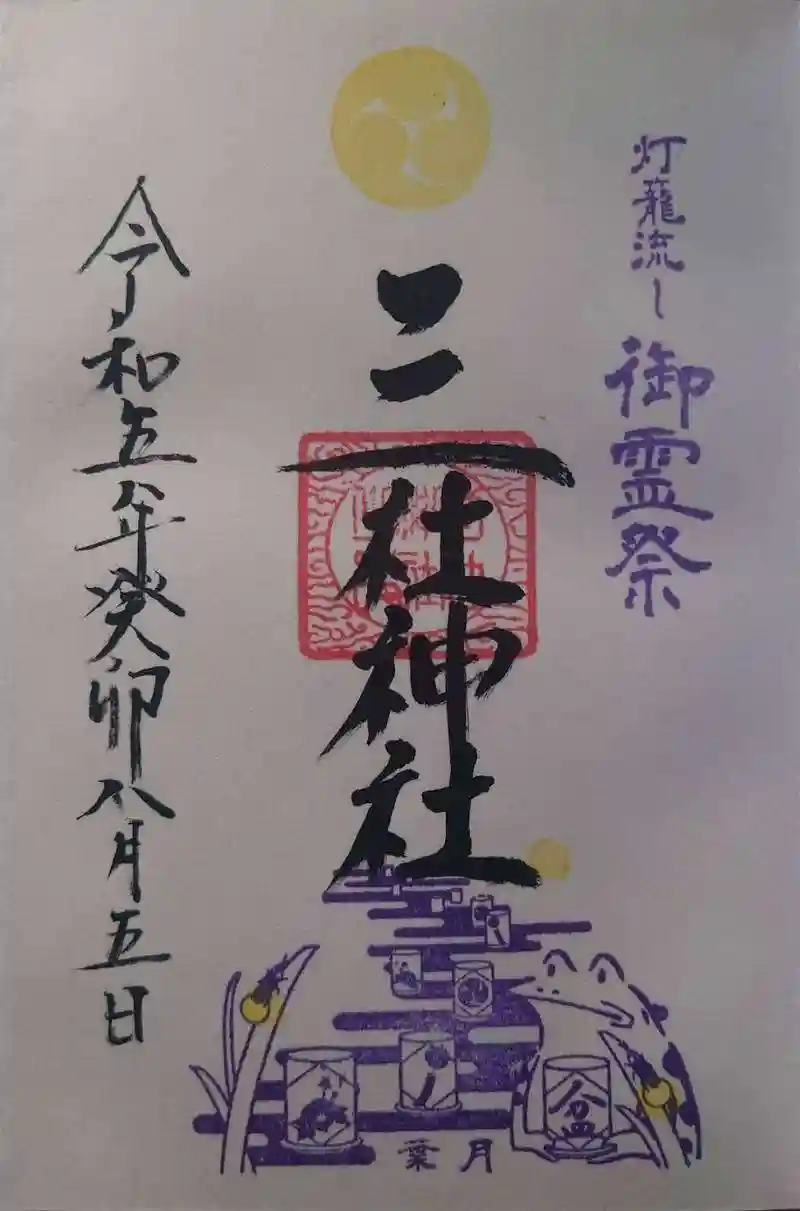 灯籠流し 御霊祭
三社神社
令和五年癸卯八月五日
盆
葉月